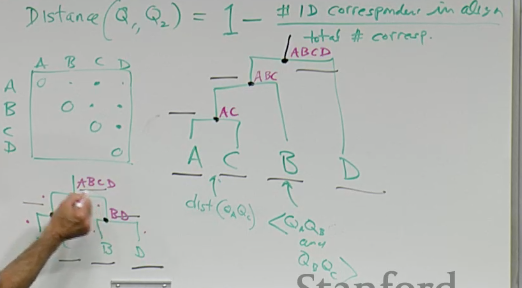 Distance (Q, Q2) = 1 - # ID correspondens in align
total # corresp.
A B C D
A 0
B 0
C 0
D 0
ABCD
ABC
AC
A C B D
dist(QAQC)
<QAQB
and
QBQC>
ABCD
BD
B D
Stanford